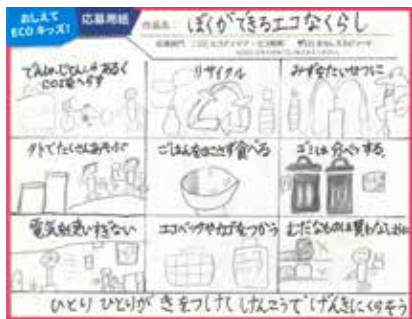 おしえて
ECO キッズ!
応募用紙
作品名: ぼくができるエコなくらし
CO2をへらす
リサイクル
みずをたいせつに
外でたくさんあそぶ
ごはんをのこさず食べる
ゴミは分べつする。
電気を使いすぎない
エコバックやカゴをつかう
むだなものは買わない
ひとり ひとりが きをつけて けんこうで げんきにくらそう